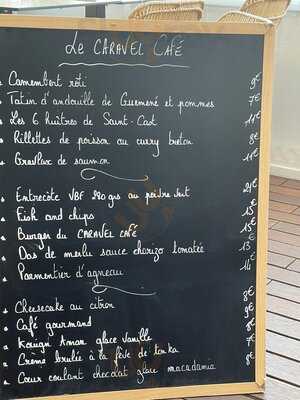 Le CARAVEL CAFÉ
Camembert rôti 9€
Tatin d'andouille de Guémené et pommes 7€
Les 6 huîtres de Saint-Cast 11€
Rillettes de poisson au curry breton 8€
Gravlax de saumon 11€
Entrecôte VBF 280 grs au poivre vert 21€
Fish and chips 15€
Burger du CARAVEL CAFÉ 15€
Dos de merlu sauce chorizo tomatée 13€
Parmentier d'agneau 14€
Cheesecake au citron 8€
Café gourmand 9€
Kouign Aman glace vanille 8€
Crème brulée à la fève de tonka 7€
Cœur coulant chocolat glace macadamia 8€